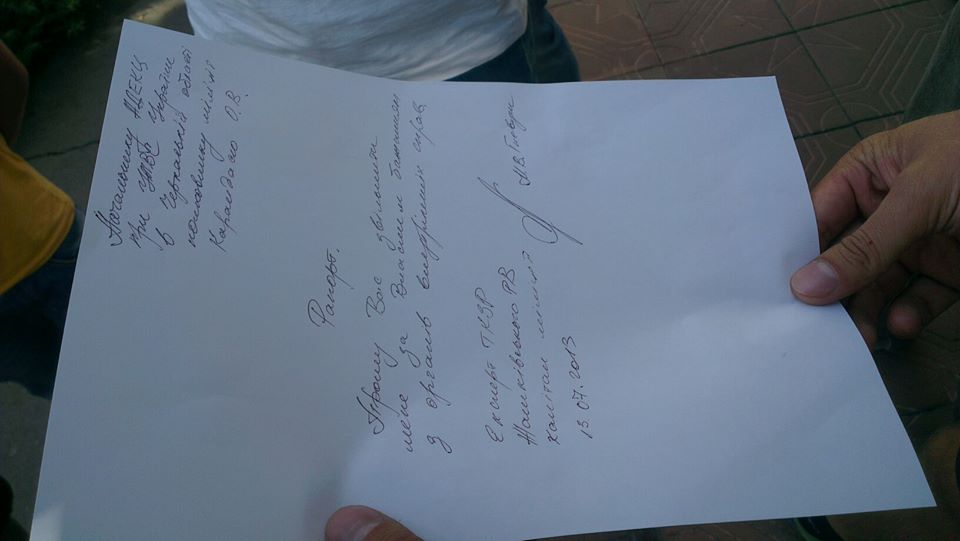 Начальнику НДЕКЦ
при УМВС України
в Черкаській області
полковнику міліції
Карандашо О.В.
Рапорт.
Прошу Вас звільнити
мене за власним бажанням
з органів внутрішніх справ
Експерт ТКЗР
Жашківського РВ
капітан міліції
13.07.2013